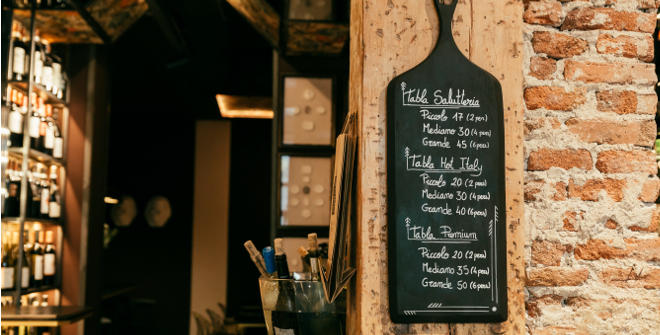 Tabla Salutteria
Piccolo 17 (2 pers)
Mediano 30 (4 pers)
Grande 45 (6 pers)
Tabla Hot Italy
Piccolo 20 (2 pers)
Mediano 30 (4 pers)
Grande 40 (6 pers)
Tabla Premium
Piccolo 20 (2 pers)
Mediano 35 (4 pers)
Grande 50 (6 pers)